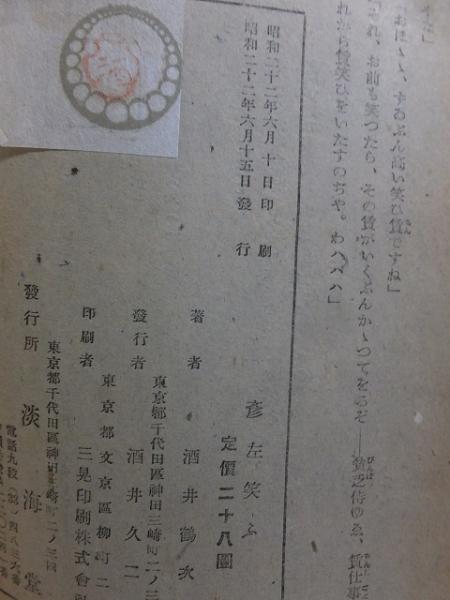 すな」
「おほゝゝ、ずゐぶん高い笑ひ賃ですね」
「それ、お前も笑つたら、その賃がいくぶんかゝつてをるぞ――貧乏侍ゆゑ、賃仕事
れから賃笑ひをいたすのぢや。わハハハハ」
昭和二十二年六月十日印刷
昭和二十二年六月十五日發行
彦左笑ふ
定價二十八圓
著者 酒井鶴次
東京都千代田區神田三崎町二ノ三
發行者 酒井久二
東京都文京區柳町二
印刷者 三晃印刷株式會
東京都千代田區神田三崎町二ノ三四
發行所 淡海堂
電話九段